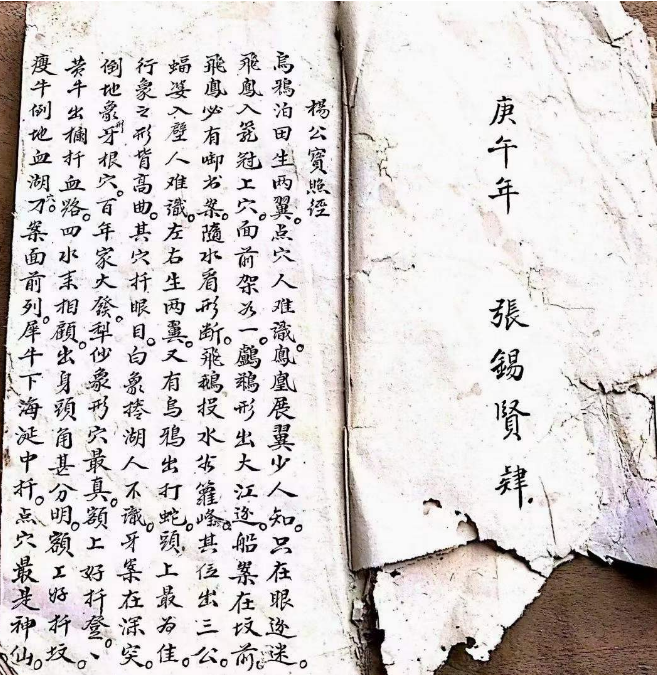 庚午年 張錫賢肄
楊公寶照經
烏鴉泊田生两翼。点穴人难識。鳳凰展翼少人知。只在眼边迷。
飛鳳入篼冠上穴。面前架為一。鸕鶿形出大江边。船案在坟前。
飛鳳必有啣书案。隨水看形断。飛鵝投水為籮峰。其位出三公。
蝠婆入壁人难識。左右生两翼。又有烏鴉出打蛇。頭上最为佳。
行象之形背高曲。其穴扦眼目。白象捲湖人不識。牙案在深突。
倒地象牙根穴。百年家大發。犁仯象形穴最真。額上好扦登。
黄牛出欄扦血路。四水来相顧。出身頭角甚分明。額上好扦坟。
瘦牛倒地血湖穴。刀案面前列。犀牛下海涎中扦。点穴最是神仙。